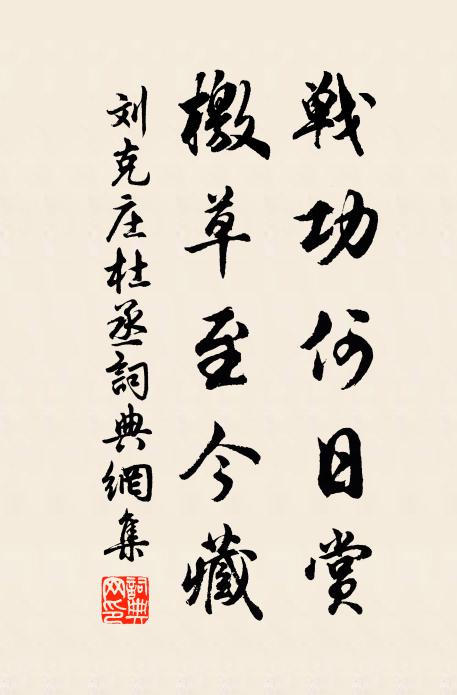 戦功何日赏
檄草至今藏
刘克庄杜丞詞典網集
詞典网印